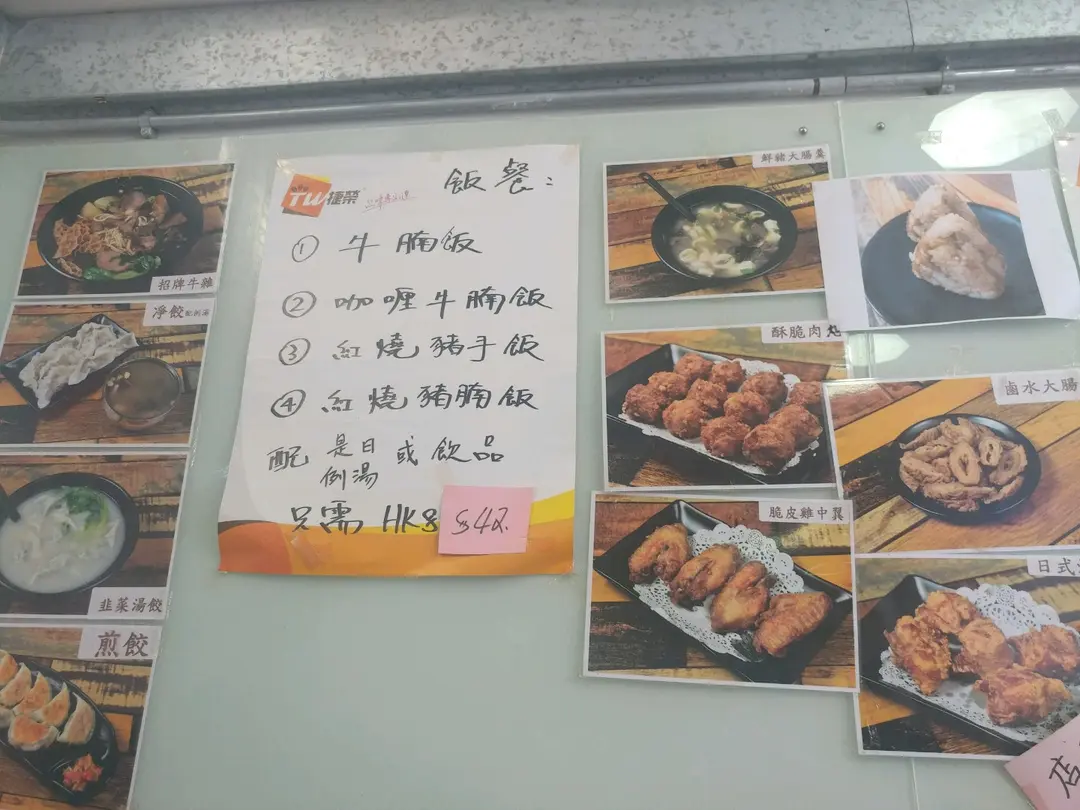 招牌牛雜
淨餃
韭菜湯餃
煎餃
TW捷榮
飯餐:
① 牛腩飯
② 咖喱牛腩飯
③ 紅燒豬手飯
④ 紅燒豬腩飯
配 是日例湯 或 飲品
只需 HK$ $42.
鮮豬大腸羹
酥脆肉丸
脆皮雞中翼
鹵水大腸
日式
店